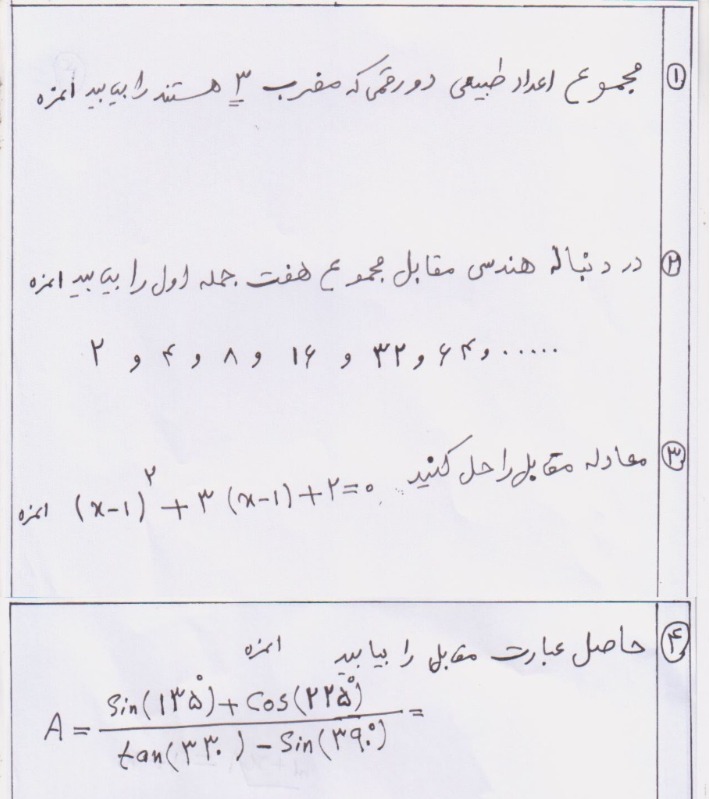 ① مجموع اعداد طبیعی دو رقمی که مضرب ۳ هستند را بیابید ۱نمزه
② در دنباله هندسی مقابل مجموع هفت جمله اول را بیابید ۱نمزه
۲ و ۴ و ۸ و ۱۶ و ۳۲ و ۶۴ و .....
③ معادله مقابل را حل کنید (x-1)^۲ + ۳(x-1) + ۲ = ۰ ۱نمزه
④ حاصل عبارت مقابل را بیابید ۱نمزه
A = Sin(۱۳۵°) + Cos(۲۲۵°) =
tan(۳۳۰) - Sin(۳۹۰°)